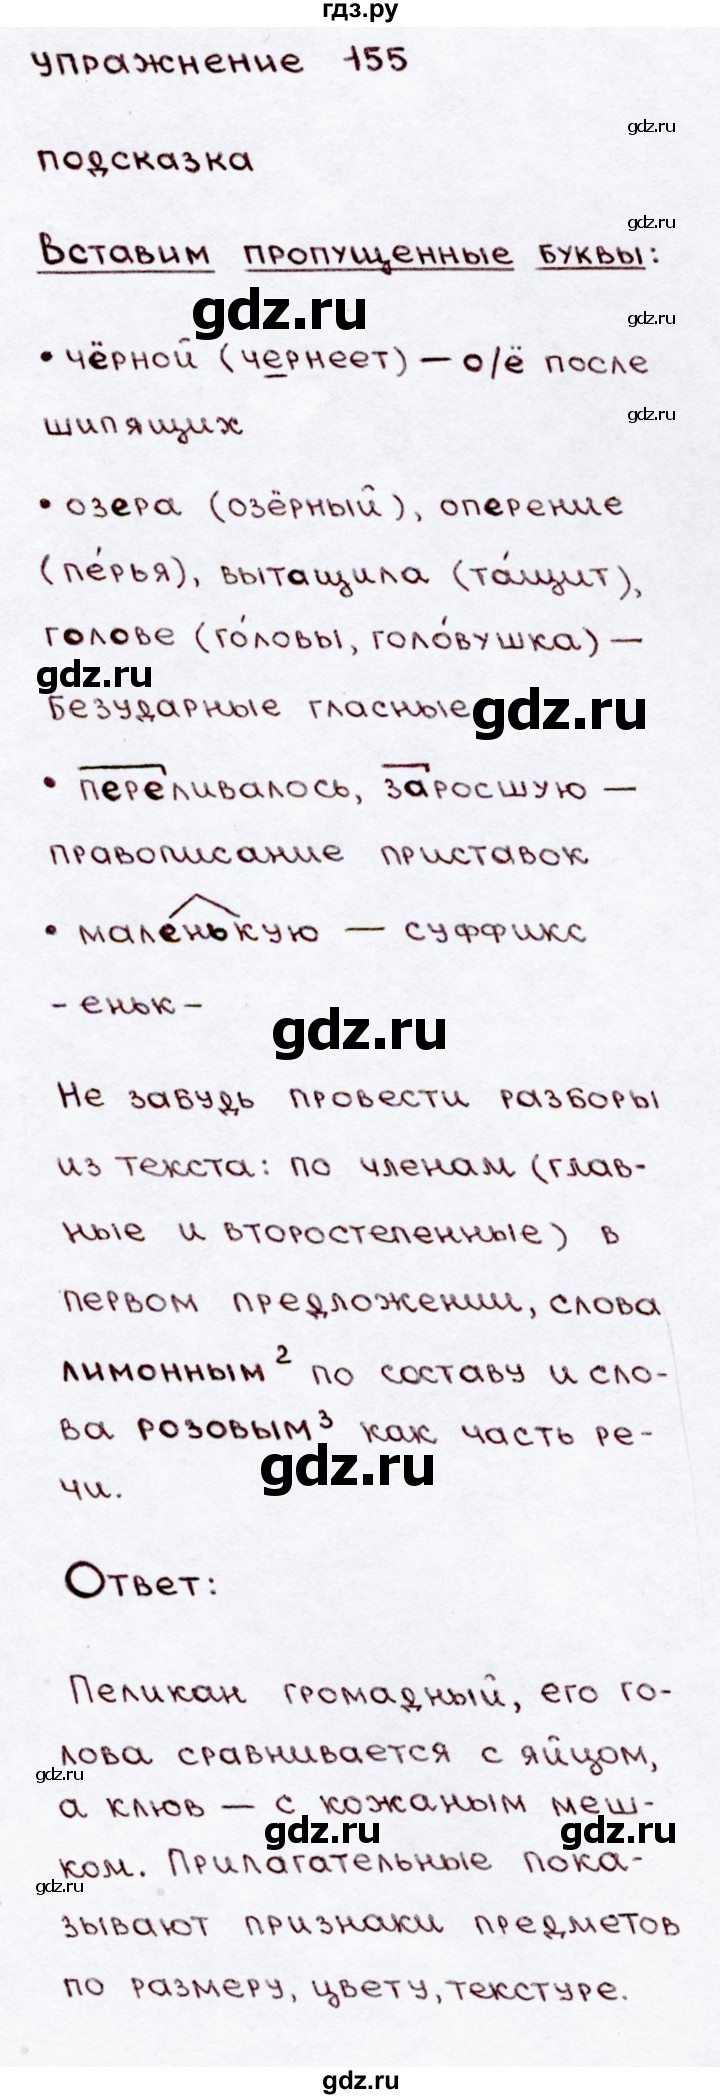 гдз.ру
упражнение 155
gdz.ru
подсказка
gdz.ru
Вставим пропущенные буквы:
gdz.ru
gdz.ru
• чёрной (чернеет) — о/ё после
gdz.ru
шипящих
• озера (озёрный), оперение
(пе́рья), вытащила (та́щит),
голове (го́ловы, голо́вушка) —
gdz.ru
безударные гласные
gdz.ru
• переливалось, заросшую —
правописание приставок
• маленькую — суффикс
-еньк-
gdz.ru
Не забудь провести разборы
из текста: по членам (глав-
ные и второстепенные) в
первом предложении, слова
лимонным² по составу и сло-
ва розовым³ как часть ре-
gdz.ru
чи.
Ответ:
Пеликан громадный, его го-
лова сравнивается с яйцом,
gdz.ru
а клюв — с кожаным меш-
gdz.ru
gdz.ru
ком. Прилагательные пока-
gdz.ru
зывают признаки предметов
по размеру, цвету, текстуре.
gdz.ru